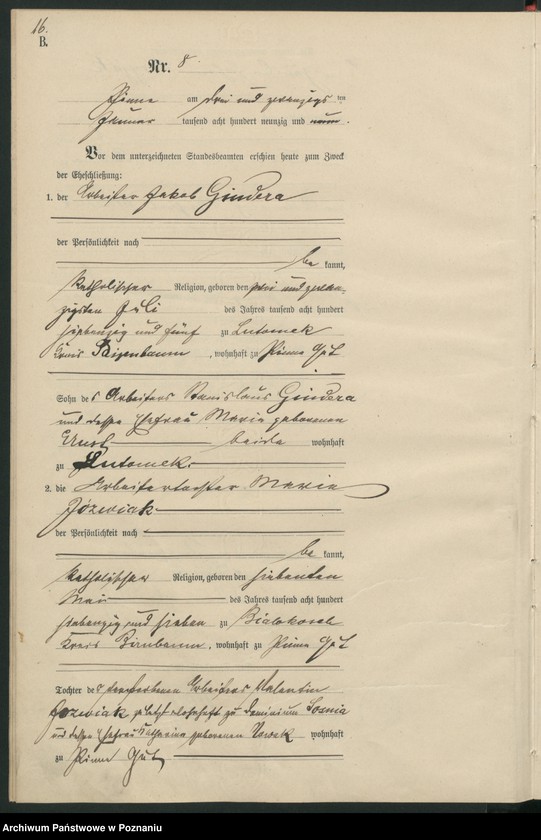 16.
B.
Nr. 8.
Pinne am drei und zwanzigs ten
Januar tausend acht hundert neunzig und neun.
Vor dem unterzeichneten Standesbeamten erschien heute zum Zweck
der Eheschließung:
1. der Arbeiter Jakob Gindera
der Persönlichkeit nach
be kannt,
katholischer Religion, geboren den und zwan-
zigsten Juli des Jahres tausend acht hundert
siebenzig und fünf zu Lutomek
Kreis Birnbaum, wohnhaft zu Pinne Gut
Sohn des Arbeiters Stanislaus Gindera
und dessen Ehefrau Marie geborenen
beide wohnhaft
zu Lutomek.
2. die Arbeitertochter Marie
Józwiak
der Persönlichkeit nach
be kannt,
katholischer Religion, geboren den siebenten
Mai des Jahres tausend acht hundert
siebenzig und sieben zu Bialokosch
Kreis Birnbaum, wohnhaft zu Pinne Gut
Tochter des verstorbenen Arbeiters Valentin
Jozwiak zuletzt wohnhaft zu Dominium
und dessen Ehefrau Katharina geborenen Nowak wohnhaft
zu Pinne Gut
Archiwum Państwowe w Poznaniu